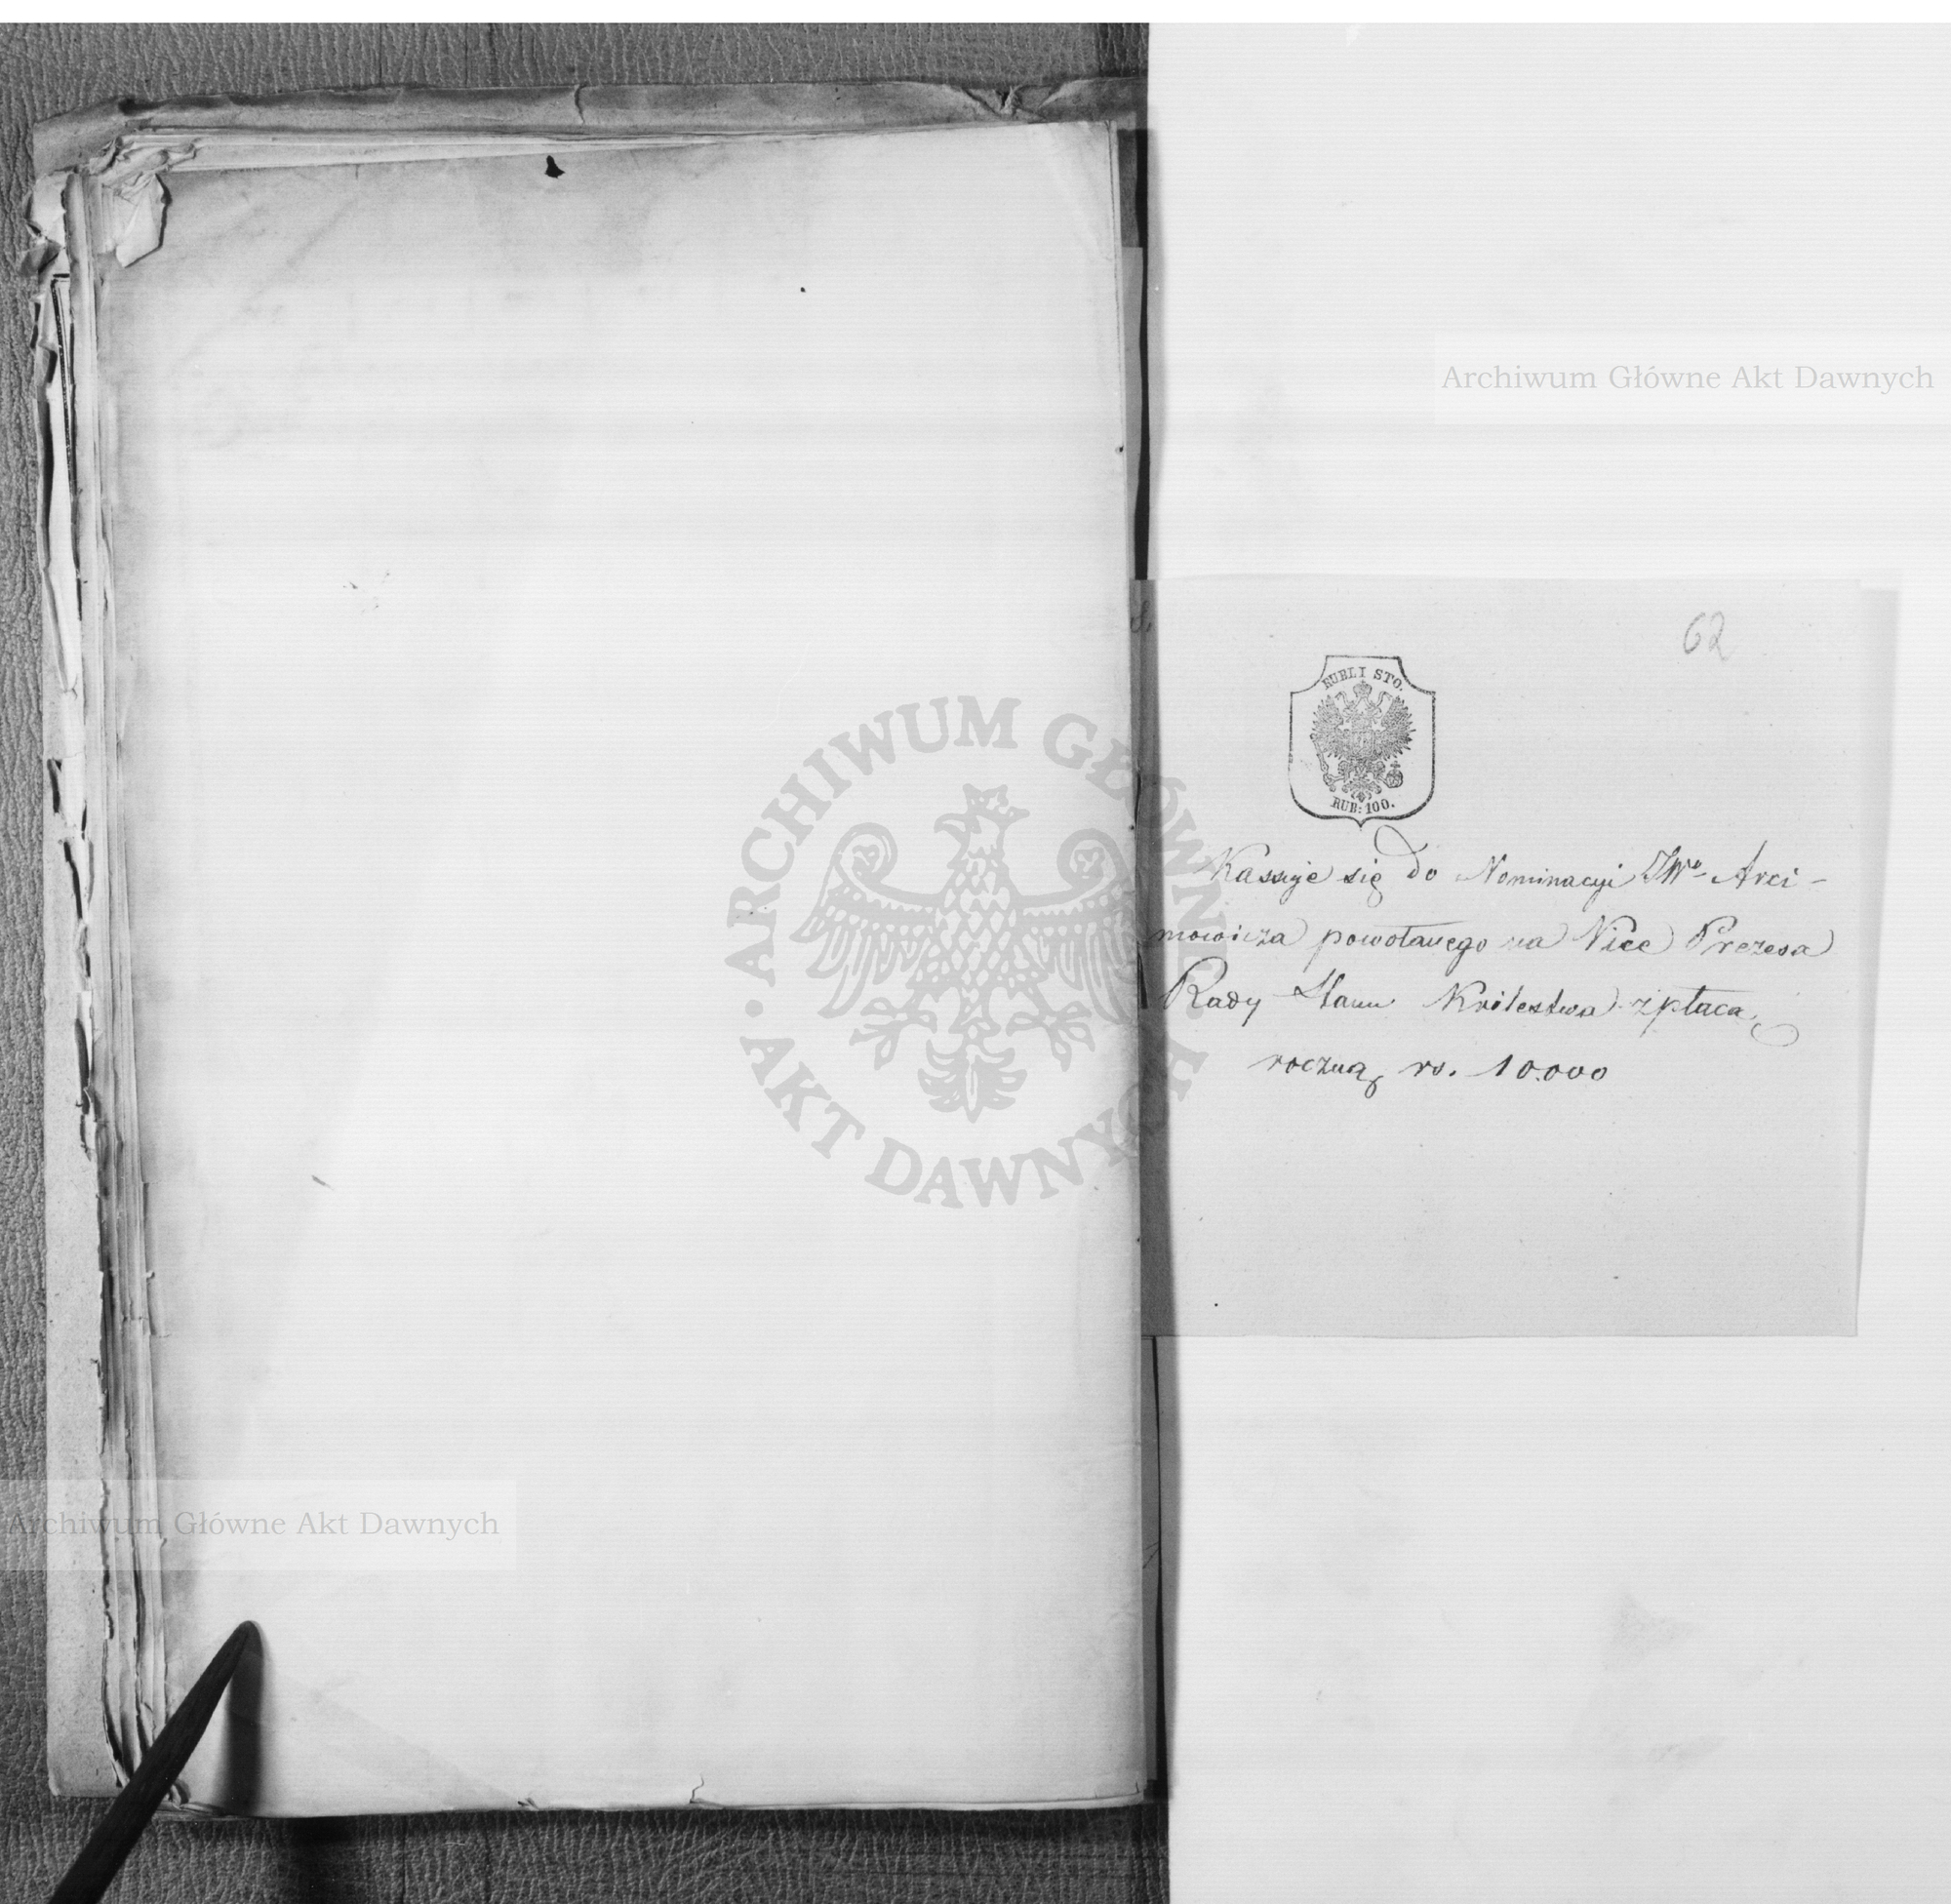 Archiwum Główne Akt Dawnych
62
RUBLI STO.
RUB: 100.
Kassuje się do Nominacyi JWo Arci-
mowicza powołanego na Vice Prezesa
Rady Stanu Królestwa z płacą
roczną rs. 10.000
ARCHIWUM GŁÓWNE AKT DAWNYCH
Archiwum Główne Akt Dawnych